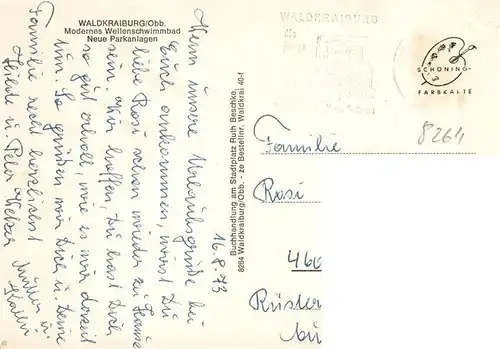 WALDKRAIBURG/Obb.
Modernes Wellenschwimmbad
Neue Parkanlagen
16.8.73
Wenn unsere Urlaubsgrüße bei
Euch ankommen, wirst Du
liebe Rosi schon wieder zu Hause
sein. Wir hoffen, Du hast Dich
so gut erholt, wie es nur derzeit
ging. So grüßen wir Dich u. Deine
Familie recht herzlichst
u. Peter
Mutter u.
Buchhandlung am Stadtplatz Ruth Beschke,
8264 Waldkraiburg/Obb. - ze Bestellnr. Waldkrai 40-f
WALDKRAIBURG
die
SCHÖNING
FARBKARTE
8264
Familie
Rosi
466
Rüster